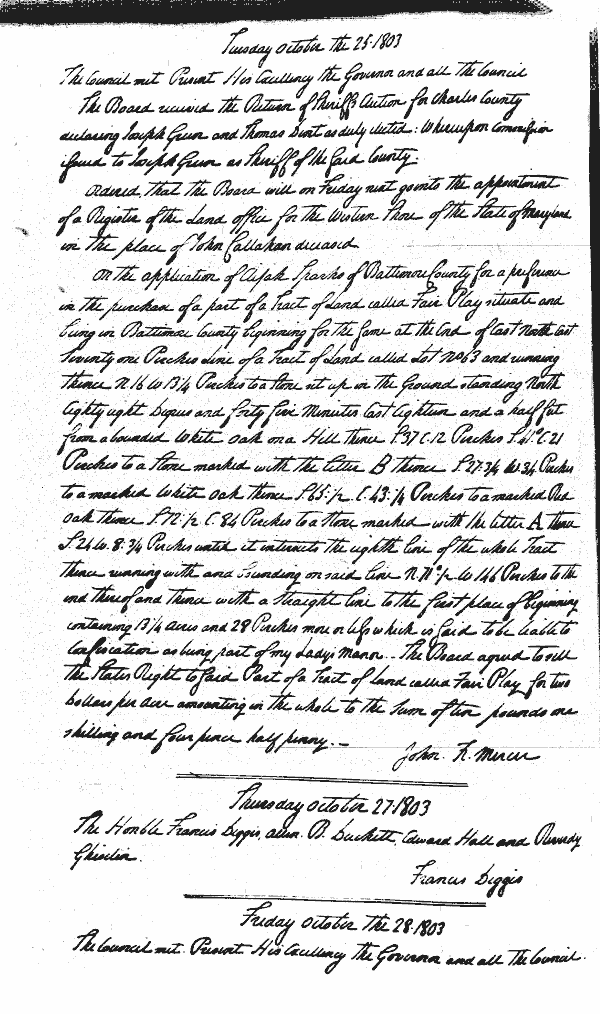 Tuesday October the 25. 1803
The Council met Present His Excellency the Governor and all the Council
The Board received the Return of Sheriffs Election for Charles County
declaring Joseph Green and Thomas Dent as duly elected: Whereupon Commission
issued to Joseph Green as Sheriff of the said County.
Ordered, that the Board will on Friday next go into the appointment
of a Register of the Land office for the Western Shore of the State of Maryland
in the place of John Callahan deceased
On the application of Sparks of Baltimore County for a preference
in the purchase of a part of a Tract of Land called Fair Play situate and
being in Baltimore County beginning for the same at the End of East North East
Seventy one Perches Line of a Tract of Land called Lot No 63 and running
thence N. 16 W 13 1/4 Perches to a Stone set up in the Ground standing North
Eighty eight Degrees and forty five Minutes East Eighteen and a half feet
from a bounded White Oak on a Hill thence S. 37 E. 12 Perches S. 41° E. 21
Perches to a Stone marked with the letter B thence S. 27 3/4 W. 34 Perches
to a marked White Oak thence S. 65 1/2 E. 43 1/4 Perches to a marked Red
Oak thence S. 72 1/2 E. 84 Perches to a Stone marked with the letter A thence
S. 26 W. 8. 3/4 Perches until it intersects the eighth line of the whole Tract
thence running with and bounding on said line N. 71° 1/2 W 146 Perches to the
end thereof and thence with a Straight line to the first place of beginning
containing 13 1/4 acres and 28 Perches more or less which is said to be liable to
Confiscation as being part of my Ladys Manor. The Board agreed to sell
the States Right to said Part of a Tract of Land called Fair Play for two
Dollars per acre amounting in the whole to the Sum of ten pounds one
shilling and four pence half penny. —
John F. Mercer
Thursday October 27. 1803
The Honble Francis Digges, Allen B. Duckett, Edward Hall and Reverdy
Ghiselin.
Francis Digges
Friday October the 28. 1803
The Council met. Present His Excellency the Governor and all the Council.